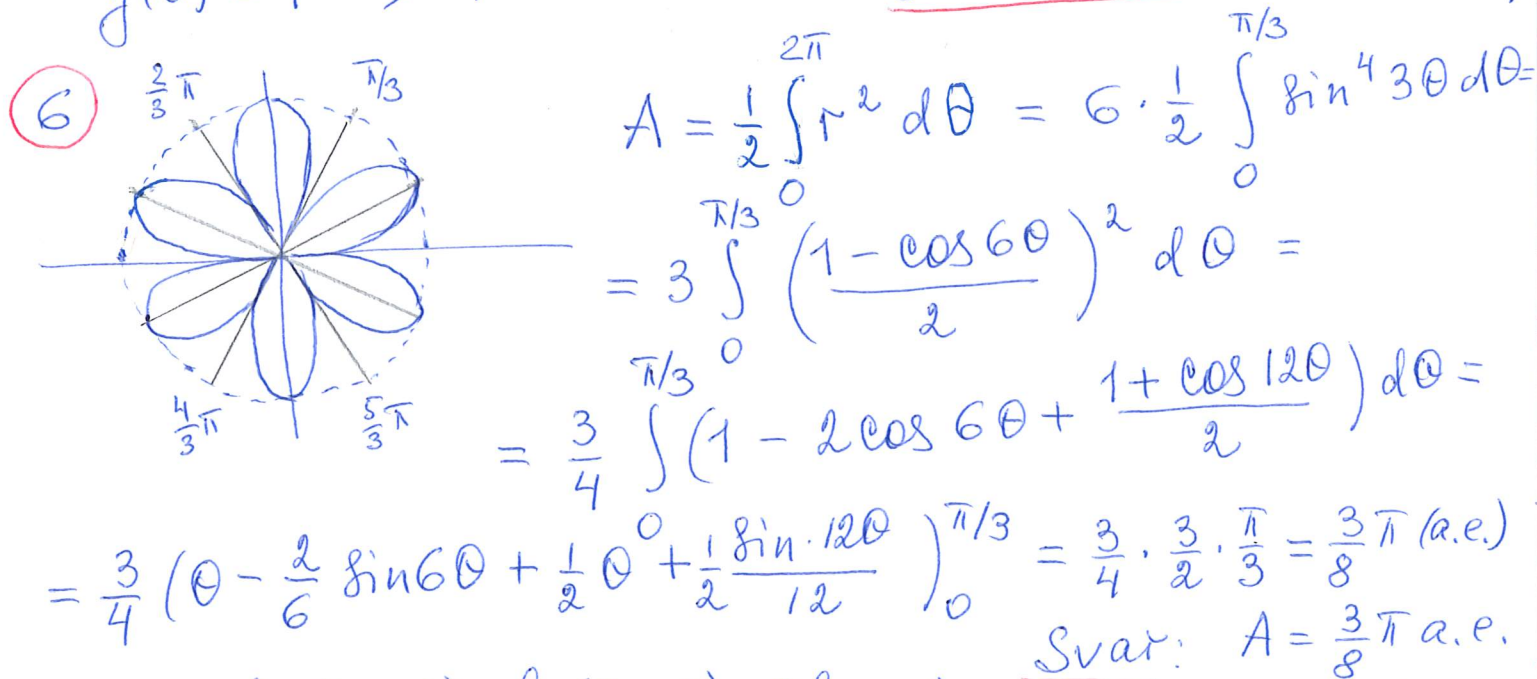 6
2/3 π
π/3
4/3 π
5/3 π
A = 1/2 ∫₀^{2π} r² dθ = 6 · 1/2 ∫₀^{π/3} sin⁴ 3θ dθ =
= 3 ∫₀^{π/3} ((1 − cos 6θ)/2)² dθ =
= 3/4 ∫₀^{π/3} (1 − 2cos 6θ + (1 + cos 12θ)/2) dθ =
= 3/4 (θ − 2/6 sin 6θ + 1/2 θ + 1/2 (sin · 12θ)/12)₀^{π/3} = 3/4 · 3/2 · π/3 = 3/8 π (a.e.)
Svar: A = 3/8 π a.e.